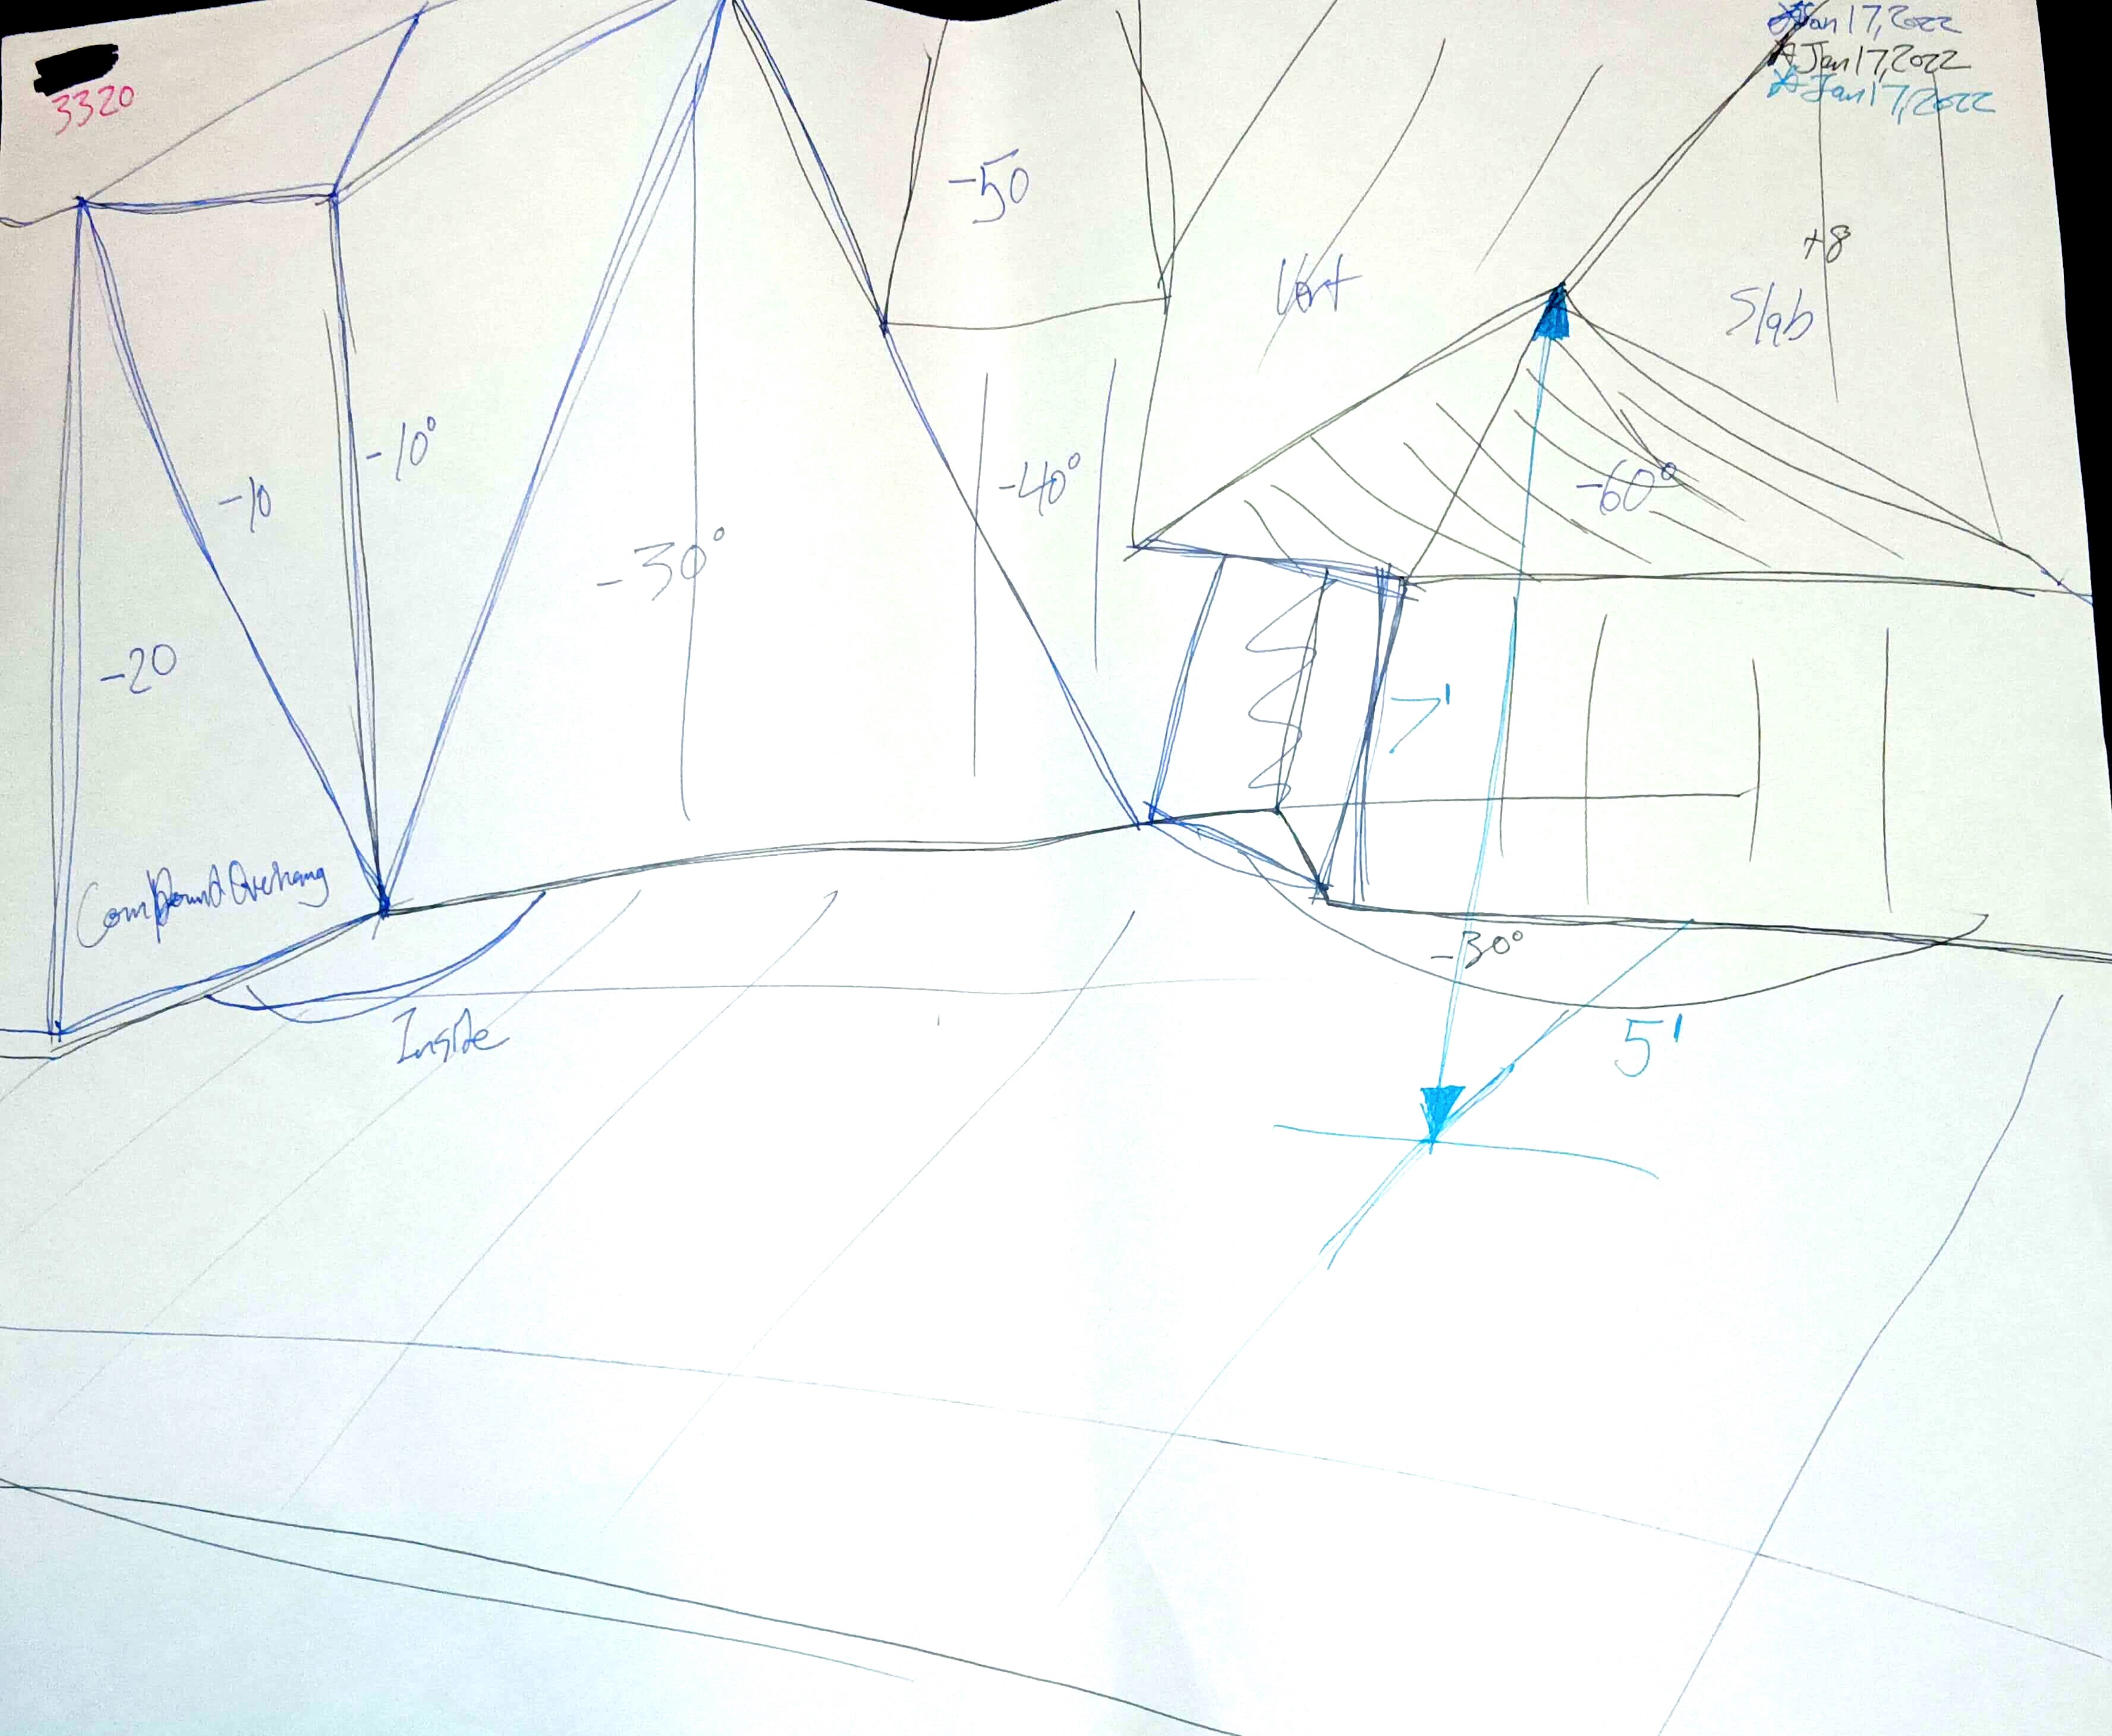 Jan 17, 2022
Jan 17, 2022
Jan 17, 2022
3320
-50
+8
Vert
Slab
-10°
-10
-40°
-60°
-30°
-20
7'
Compound Overhang
-30°
Inside
5'